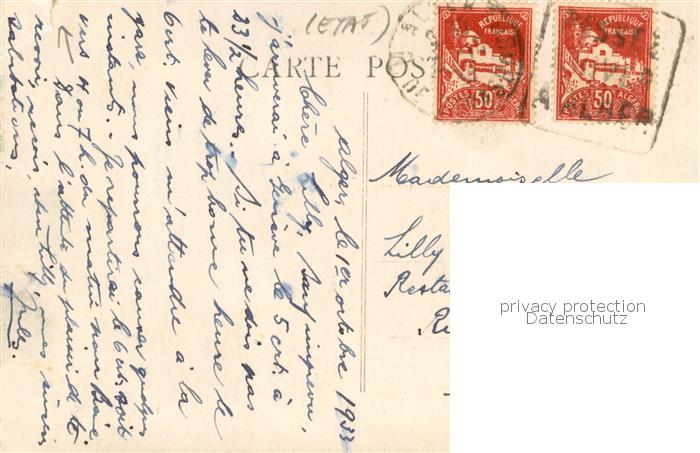 (ETAT)
CARTE POST
RÉPUBLIQUE
FRANÇAISE
POSTES ALGÉRIE
50c
RÉPUBLIQUE
FRANÇAISE
POSTES ALGÉRIE
50c
Alger, le 1er octobre 1933
Chère Lilly, Sauf imprévu,
j'arriverai à Genève le 5 crt. à
23 1/2 heures. Si tu ne dois pas
te lever de trop bonne heure le
6 crt. viens m'attendre à la
gare, nous pourrons causer quelques
instants. Je repartirai le 6 crt. soit
vers 4 ou 7 h. du matin
Dans l'attente du plaisir de te
revoir, reçois, chère Lilly, mes sincères
salutations.
Jules.
Mademoiselle
Lilly
Resta
Ru
privacy protection
Datenschutz